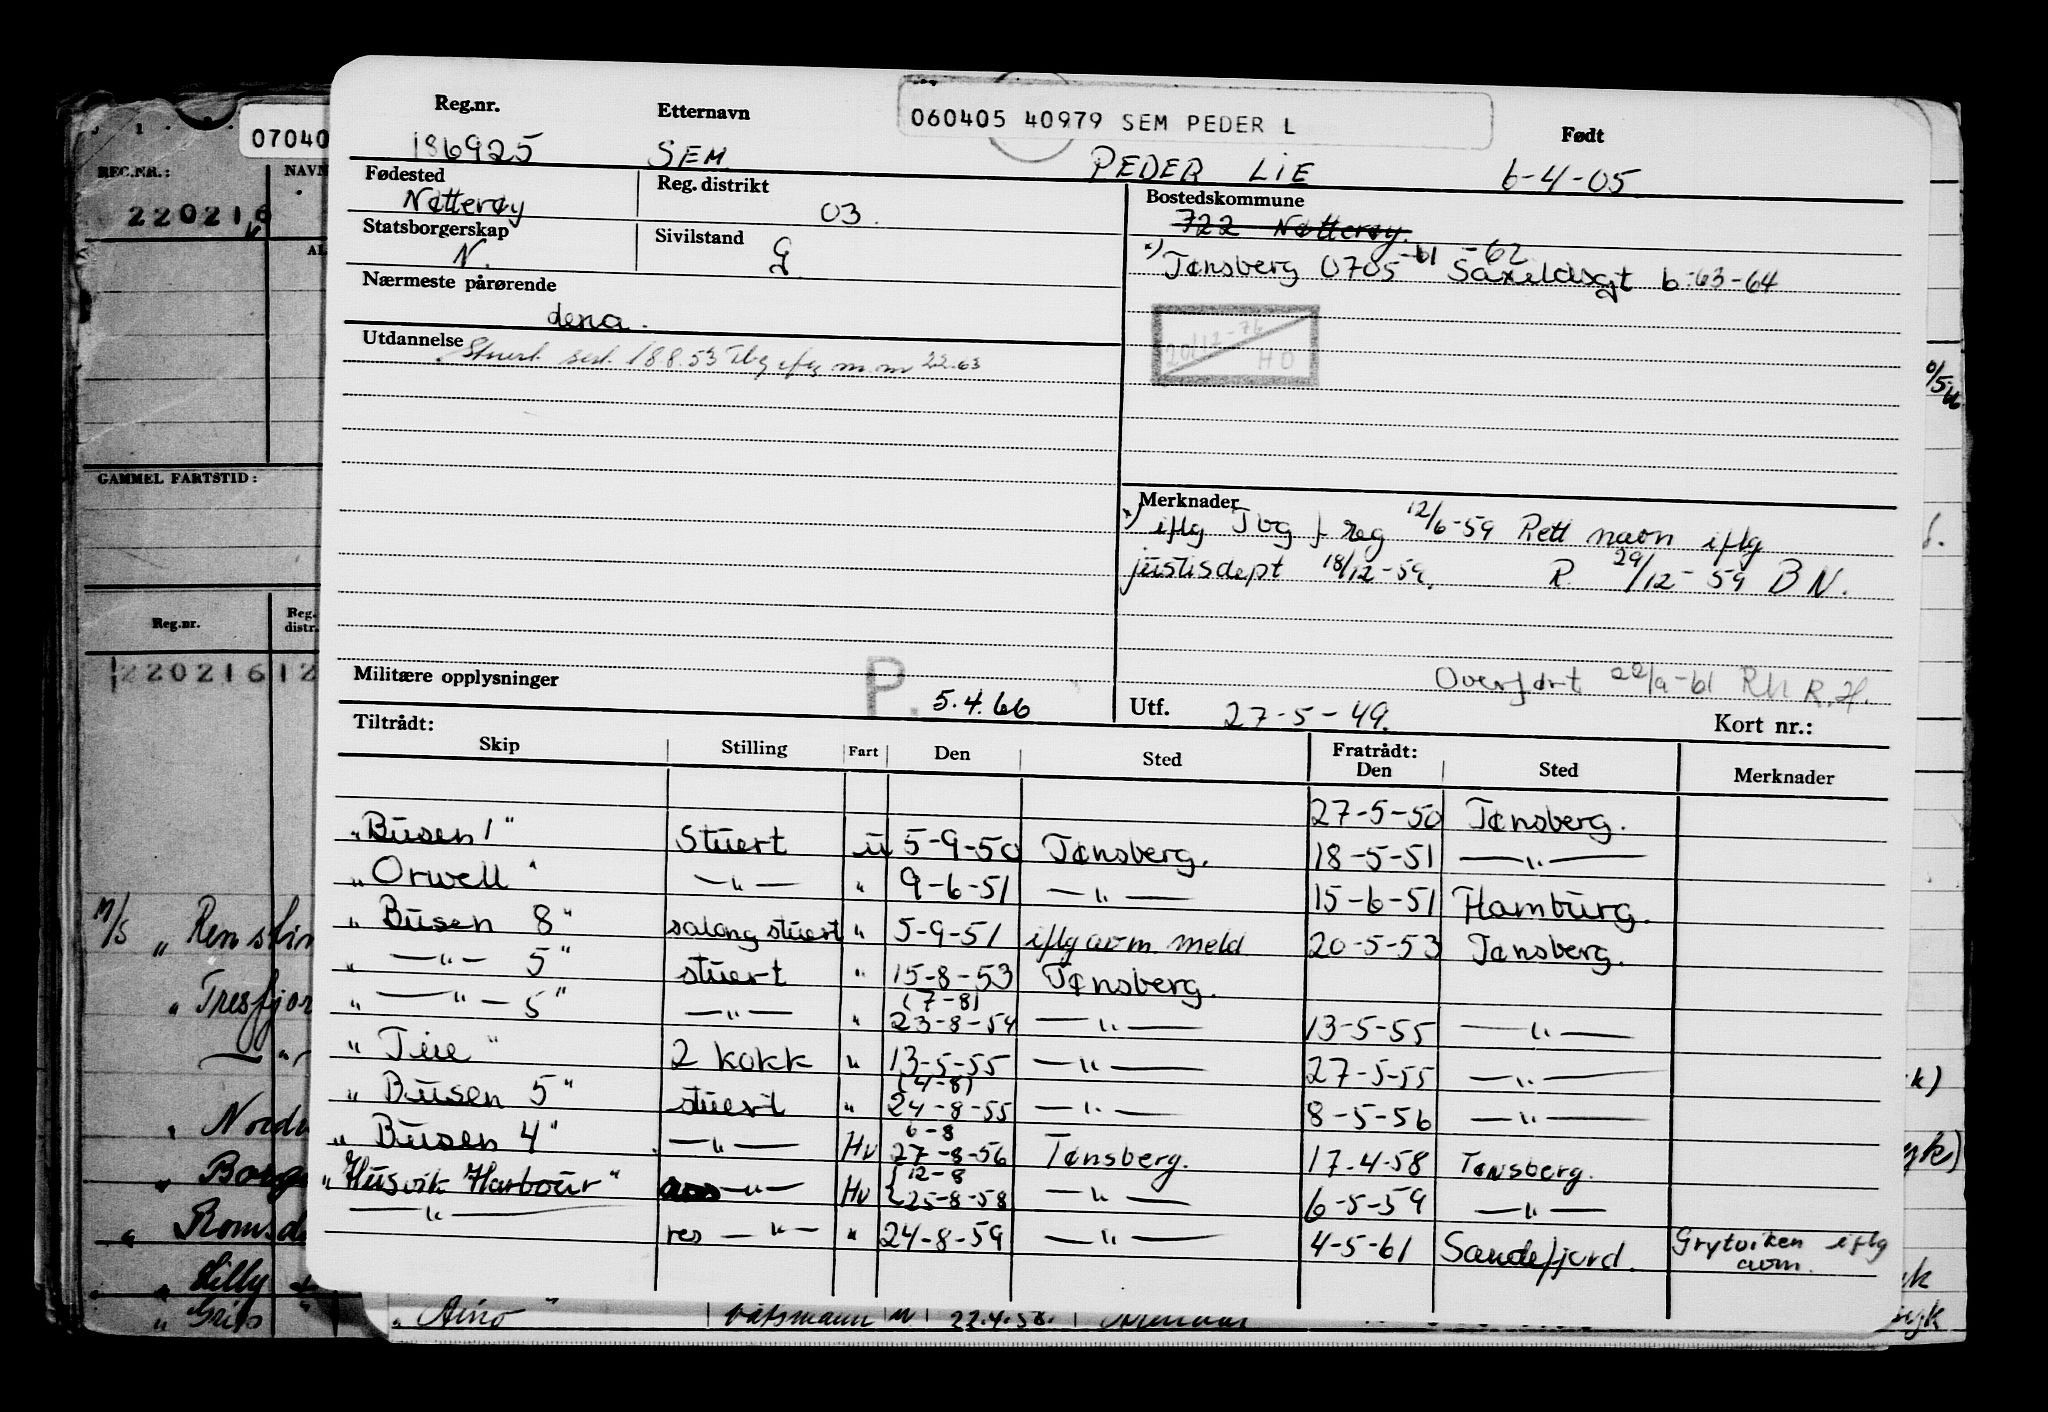 07040
REG.NR.:
NAVN
220216
GAMMEL FARTSTID:
Reg.nr.
Reg. distr.
220216 12
M/S
Lilly
060405 40979 SEM PEDER L
Reg.nr. Etternavn Født
186925 SEM PEDER LIE 6-4-05
Fødested Reg. distrikt Bostedskommune
Nøtterøy 03. 722 Nøtterøy.
Statsborgerskap Sivilstand
N. G
x) Tønsberg 0705 -61 -62 6 -63-64
Nærmeste pårørende
dena.
Utdannelse
Stuert sert. 18.8.53 Tbg iflg m.m 22.63
20/12-76
HO
Merknader
x) iflg Tbg f reg 12/6-59 Rett navn iflg
justisdept 18/12-59. R. 29/12-59 BN.
Overført 22/9-61 R.H.
Militære opplysninger P. 5.4.66
Utf. 27-5-49. Kort nr.:
Tiltrådt: Fratrådt:
Skip Stilling Fart Den Sted Den Sted Merknader
27-5-50 Tønsberg.
"Busen 1" Stuert u 5-9-50 Tønsberg. 18-5-51 —"—
"Orwell" —"— " 9-6-51 —"— 15-6-51 Hamburg.
"Busen 8" salong stuert " 5-9-51 iflg avm. meld 20-5-53 Tønsberg.
" —"— 5" stuert " 15-8-53 Tønsberg.
" —"— 5" —"— " (7-8) 23-8-54 —"— 13-5-55 —"—
"Tiie" 2 kokk " 13-5-55 —"— 27-5-55 —"—
"Busen 5" stuert " (4-8) 24-8-55 —"— 8-5-56 —"—
"Busen 4" —"— Hv 6-8 27-8-56 Tønsberg. 17.4-58 Tønsberg.
"Husvik Harbour" ass —"— Hv 12-8 25-8-58 —"— 6-5-59 —"—
—"— res —"— " 24-8-59 —"— 4-5-61 Sandefjord. Grytviken iflg avm.
"Aino" båtsmann 22.4.58.